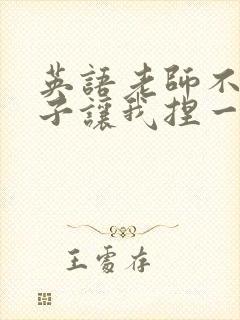 英語老師不
子讓我捏一
王雪存